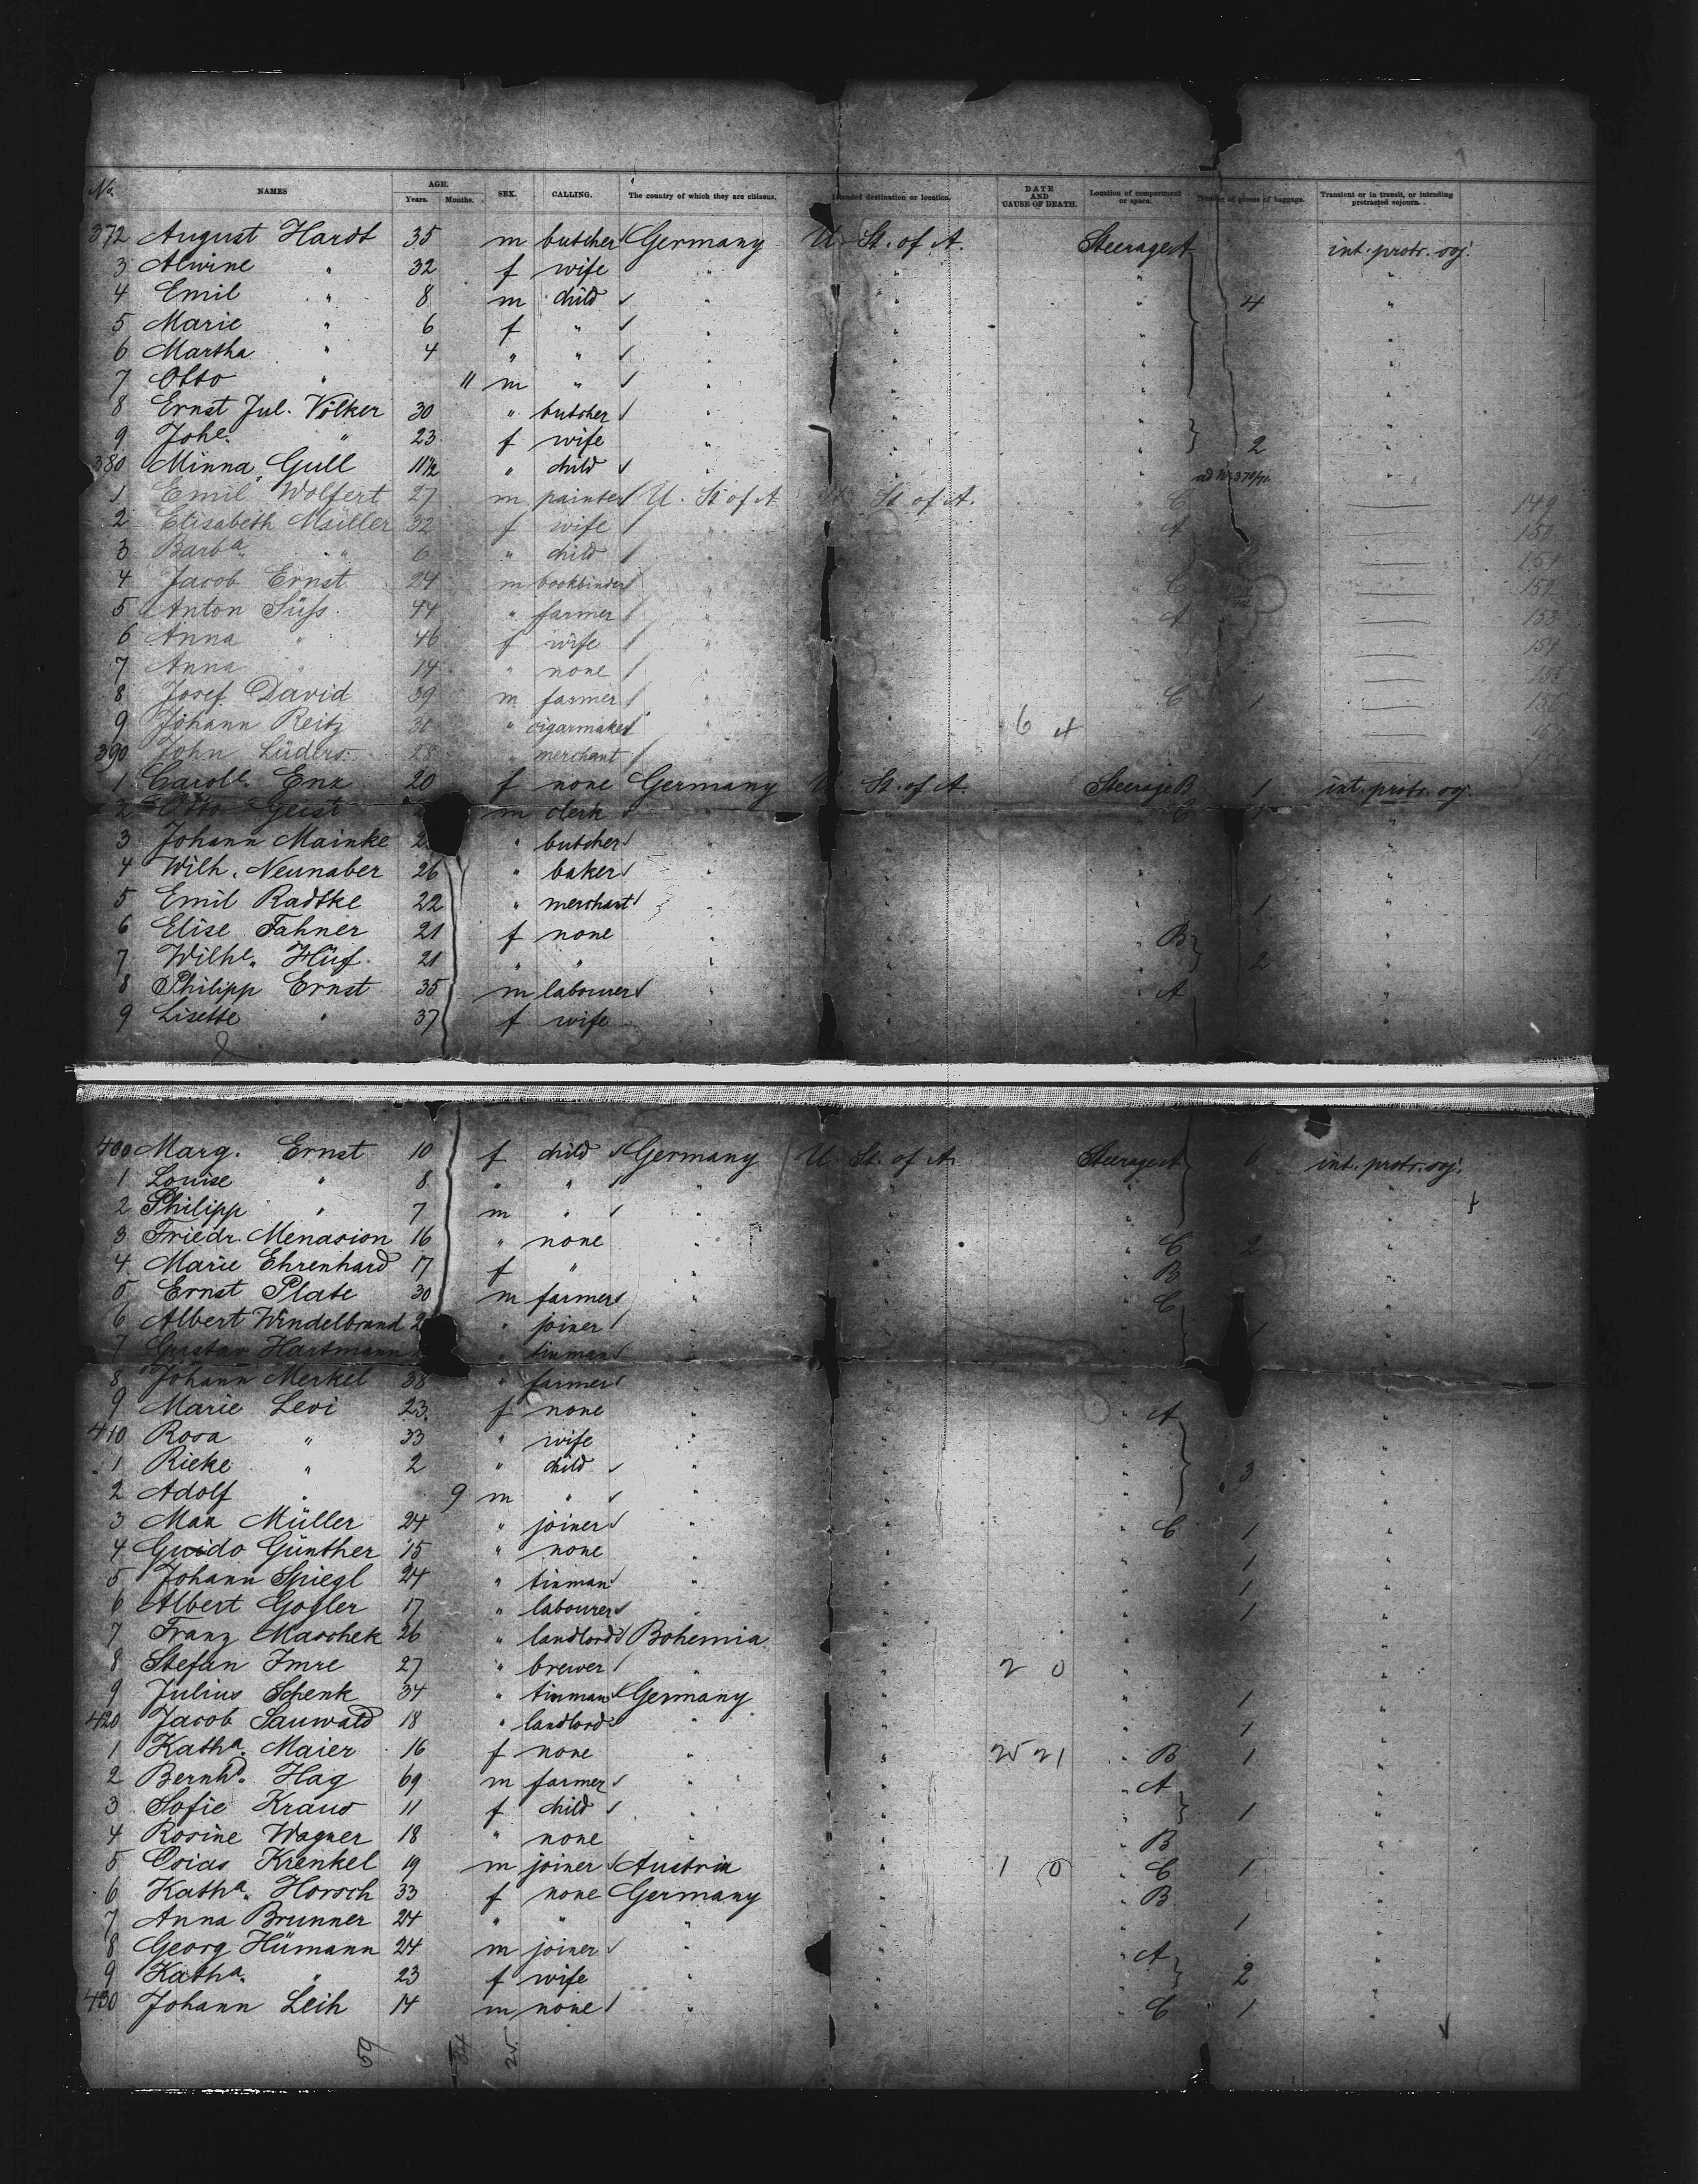 No. NAMES AGE. Years. Months. SEX. CALLING. The country of which they are citizens. Intended destination or location. DATE AND CAUSE OF DEATH. Location of compartment or space. Number of pieces of baggage. Transient or in transit, or intending protracted sojourn.
372 August Hardt 35 m butcher Germany U. St. of A. Steerage A int. protr. soj.
3 Alwine " 32 f wife " " " "
4 Emil " 8 m child " " " 4 "
5 Marie " 6 f " " " " "
6 Martha " 4 " " " " " "
7 Otto " 11 m " " " " "
8 Ernst Jul. Völker 30 " butcher " " " "
9 Johe. " 23 f wife " " " 2 "
380 Minna Gull 11½ " child " " "
1 Emil Wolfert 27 m painter U. St of A U. St of A. C — 149
2 Elisabeth Müller 32 f wife " " A — 150
3 Barba. " 6 " child " " " — 151
4 Jacob Ernst 24 m bookbinder " " C — 152
5 Anton Süfs 44 " farmer " " A — 153
6 Anna " 46 f wife " " " — 154
7 Anna " 14 " none " " " —
8 Josef David 39 m farmer " " C 1 — 156
9 Johann Reitz " cigarmaker " " 6 4 " —
390 John Lüders 28 " merchant " " "
1 Carole. Enz 20 f none Germany U. St. of A. Steerage B 1 int. protr. soj.
2 Otto Geist m clerk " " " C 1 "
3 Johann Mainke " butcher " " " "
4 Wilh. Neunaber 26 " baker " " " "
5 Emil Radtke 22 " merchant " " " 1 "
6 Elise Fahner 21 f none " " " B "
7 Wilhe. Hüf 21 " " " " " 2 "
8 Philipp Ernst 35 m labourer " " " A "
9 Lisette " 37 f wife " " " "
400 Marg. Ernst 10 f child Germany U. St. of A. Steerage A 6 int. protr. soj.
1 Louise " 8 " " " " " "
2 Philipp " 7 m " " " " "
3 Friedr. Menasion 16 " none " " " C 2 "
4 Marie Ehrenhard 17 f " " " " B "
5 Ernst Plate 30 m farmer " " " C "
6 Albert Windelbrand " joiner " " " 1 "
7 Gustav Hartmann " tinman " " " "
8 Johann Merkel 38 " farmer " " " "
9 Marie Levi 23 f none " " " A "
410 Rosa " 33 " wife " " " "
1 Rieke " 2 " child " " " 3 "
2 Adolf " 9 m " " " " "
3 Max Müller 24 " joiner " " " C 1 "
4 Guido Günther 15 " none " " " 1 "
5 Johann Spiegl 24 " tinman " " " 1 "
6 Albert Gogler 17 " labourer " " " 1 "
7 Franz Maschek 26 " landlord Bohemia " " "
8 Stefan Imre 27 " brewer " " 2 0 " "
9 Julius Schenk 34 " tinman Germany " " 1 "
420 Jacob Sauwald 18 " landlord " " " 1 "
1 Katha. Maier 16 f none " " 25 21 " B 1 "
2 Bernhd. Hag 69 m farmer " " " A "
3 Sofie Kraus 11 f child " " " 1 "
4 Rosine Wagner 18 " none " " " B "
5 Osias Krenkel 19 m joiner Austria " 1 0 " C 1 "
6 Katha. Horsch 33 f none Germany " " B "
7 Anna Brunner 24 " " " " " 1 "
8 Georg Hümann 24 m joiner " " " A "
9 Katha. " 23 f wife " " " 2 "
430 Johann Leih 14 m none " " " C 1 "
59 34 25